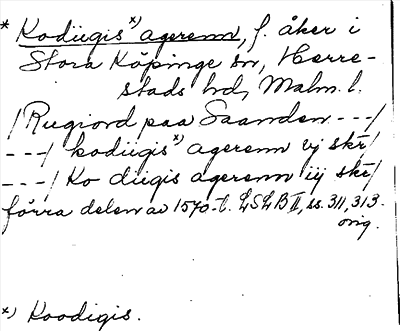 * Kodiigis *) agerenn, f. åker i
Stora Köpinge sn, Herre-
stads hd, Malm. l.
/Rugiord paa Saanden ---/
---/ kodiigis *) agerenn vj skr/
---/ Ko diigis agerenn iij skr/
förra delen av 1570-t. LSLB II, ss. 311, 313.
orig.
*) Koodigis.